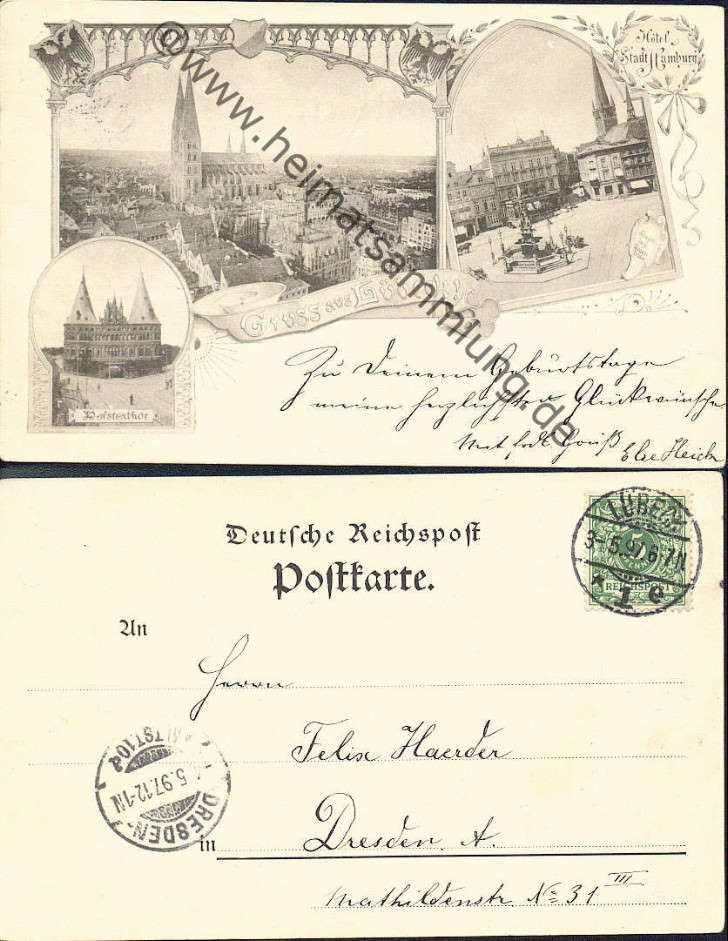 Hôtel
Stadt Hamburg
©www.heimatsammlung.de
Gruss aus
Holstenthor
Zu Deinem Geburtstage
meine herzlichsten Glückwünsche
Mit Gruß Else
Deutsche Reichspost
Postkarte.
LÜBECK
3-5.97.6-7N
* 1 e
5
REICHSPOST
An
Herrn
Felix Haerder
DRESDEN-ALTST.10
5.97.12-1N
in Dresden. A.
Mathildenstr. No 31 III